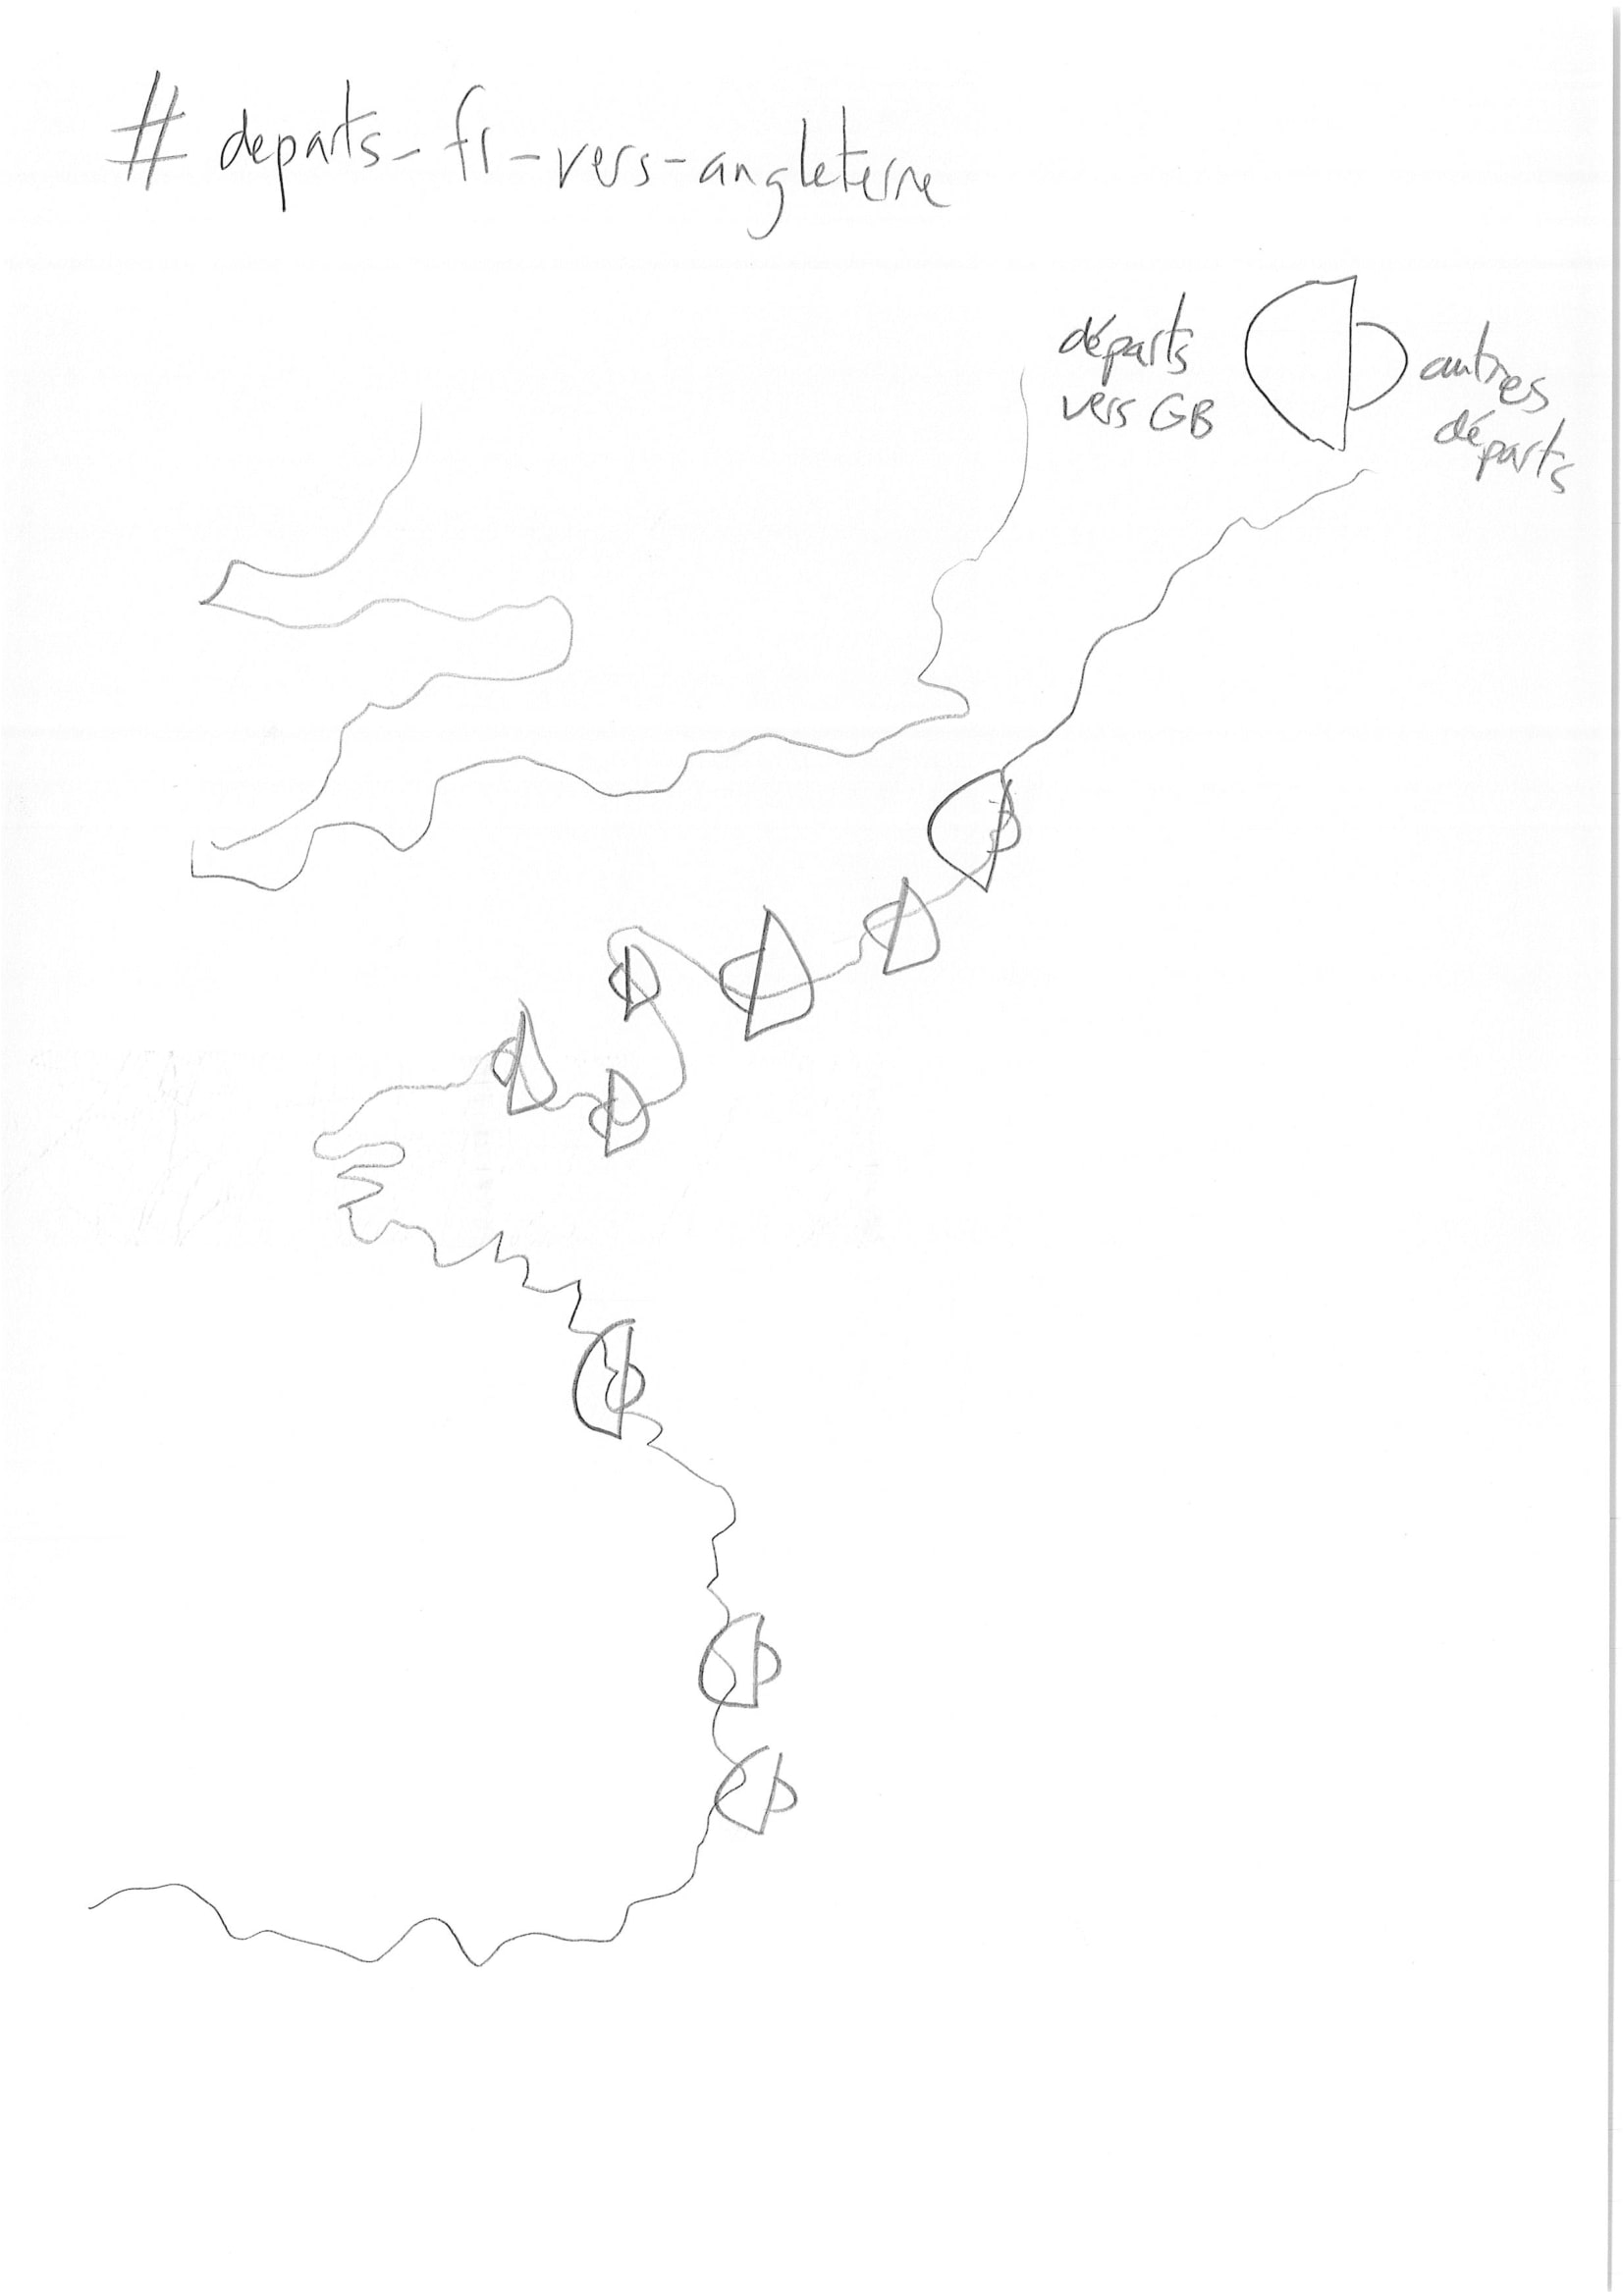 # departs_fr_vers_angleterre
départs
vers GB
autres
départs